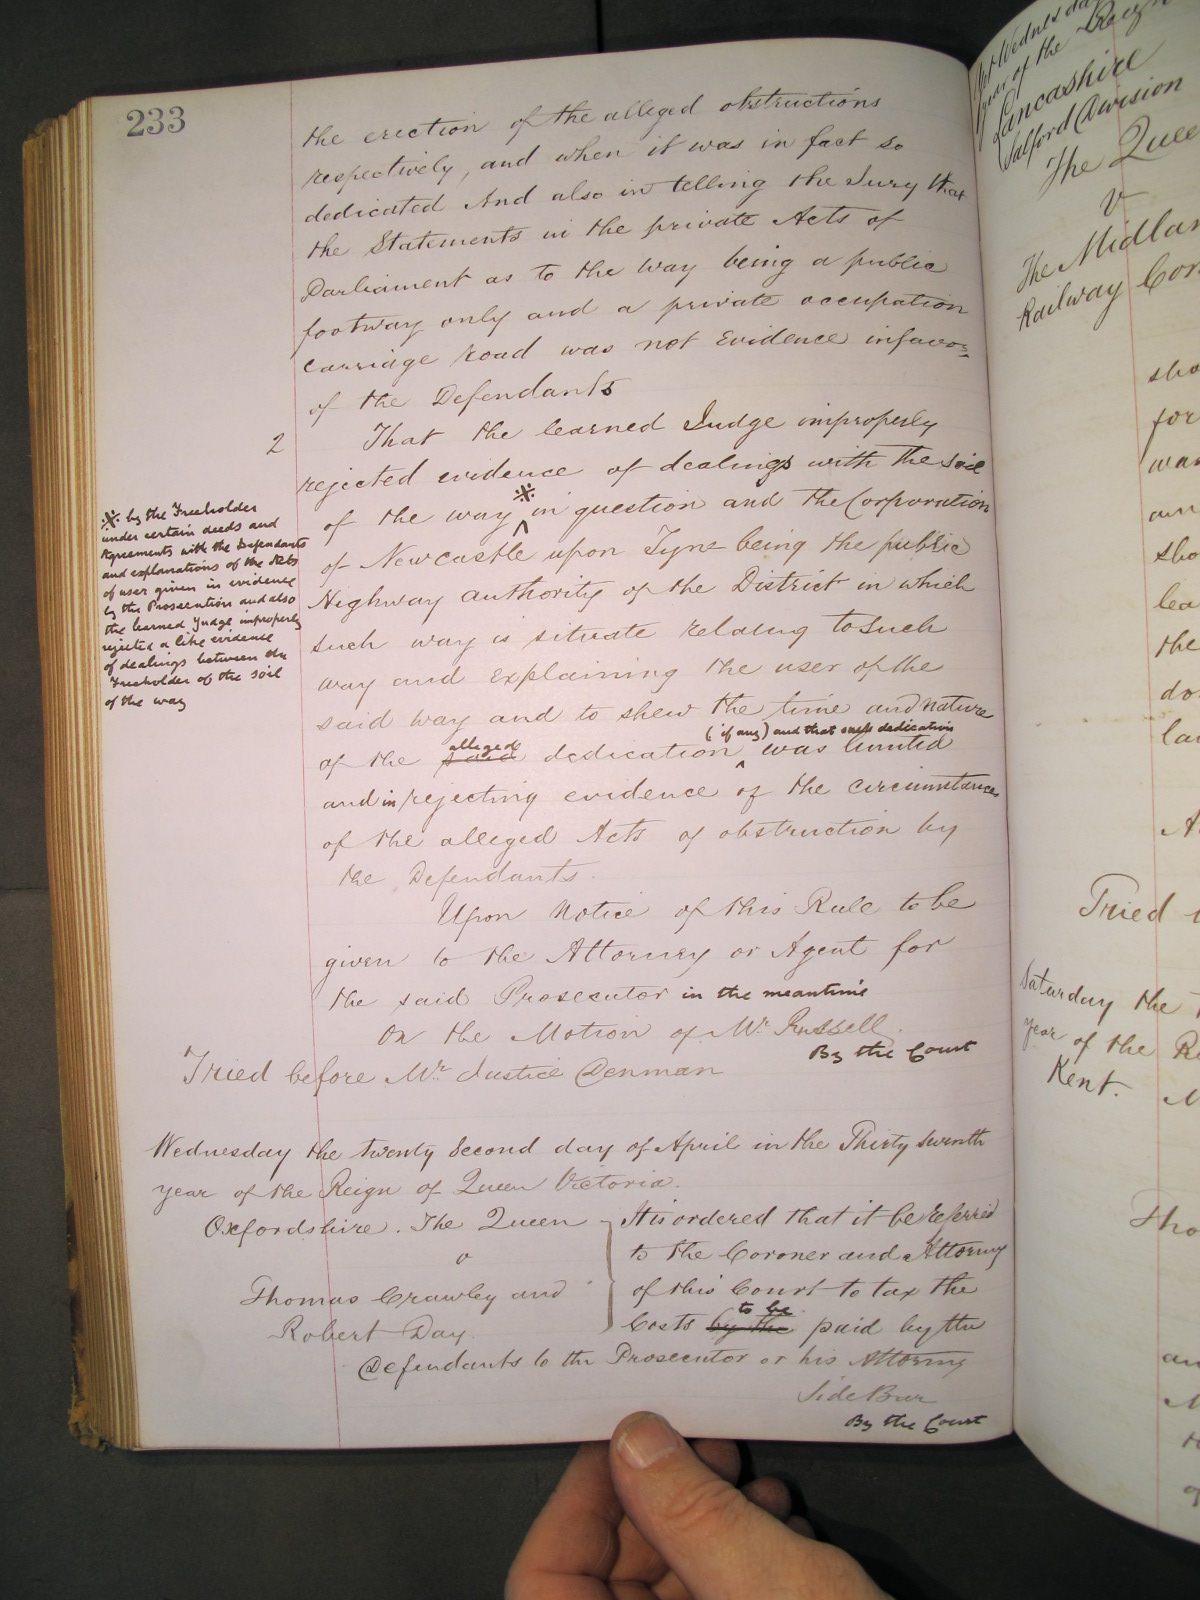 233
the erection of the alleged obstructions
respectively, and when it was in fact so
dedicated And also in telling the Jury that
the Statements in the private Acts of
Parliament as to the way being a public
footway only and a private occupation
carriage road was not Evidence in favor
of the Defendants
2 That the learned Judge improperly
rejected evidence of dealings with the soil
of the way ※ in question and the Corporation
of Newcastle upon Tyne being the public
Highway authority of the District in which
such way is situate relating to such
way and explaining the user of the
said way and to shew the time and nature
alleged (if any) and that such dedication
of the said dedication was limited
and in rejecting evidence of the circumstances
of the alleged Acts of obstruction by
the Defendants.
※ by the Freeholder
under certain deeds and
Agreements with the Defendants
and explanations of the Acts
of user given in evidence
by the Prosecution and also
the learned Judge improperly
rejected a like evidence
of dealings between the
Freeholder of the soil
of the way
Upon Notice of this Rule to be
given to the Attorney or Agent for
the said Prosecutor in the meantime
On the Motion of Mr. Russell.
By the Court
Tried before Mr. Justice Denman
Wednesday the twenty second day of April in the Thirty seventh
year of the Reign of Queen Victoria.
Oxfordshire. The Queen
v
Thomas Crawley and
Robert Day.
It is ordered that it be referred
to the Coroner and Attorney
of this Court to tax the
to be
Costs by the paid by the
Defendants to the Prosecutor or his Attorney
Side Bar
By the Court
year of the Reign
Lancashire
Salford Division
The Queen
v
The Midlan
Railway Com
sho
for
was
sho
lea
the
do
la
Tried
Saturday the
year of the Re
Kent.
Tho